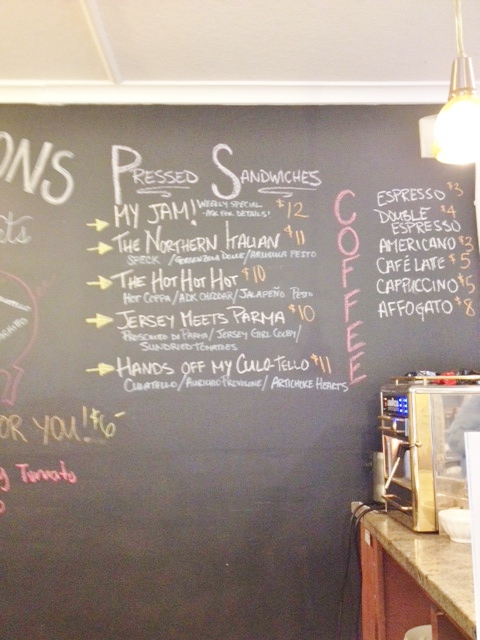 ONS
PRESSED SANDWICHES
MY JAM! WEEKLY SPECIAL $12
-ASK FOR DETAILS!
THE NORTHERN ITALIAN $11
SPECK / GORGONZOLA DOLCE / ARUGULA PESTO
THE HOT HOT HOT $10
HOT COPPA / ADK CHEDDAR / JALAPEÑO PESTO
JERSEY MEETS PARMA $10
PROSCIUTTO DI PARMA / JERSEY GIRL COLBY /
SUNDRIED TOMATOES
HANDS OFF MY CULA-TELLO $11
CULATELLO / AURICCHIO PROVOLONE / ARTICHOKE HEARTS
COFFEE
ESPRESSO $3
DOUBLE $4
ESPRESSO
AMERICANO $3
CAFÉ LATE $5
CAPPUCCINO $5
AFFOGATO $8
OR YOU! $6-
Tomato